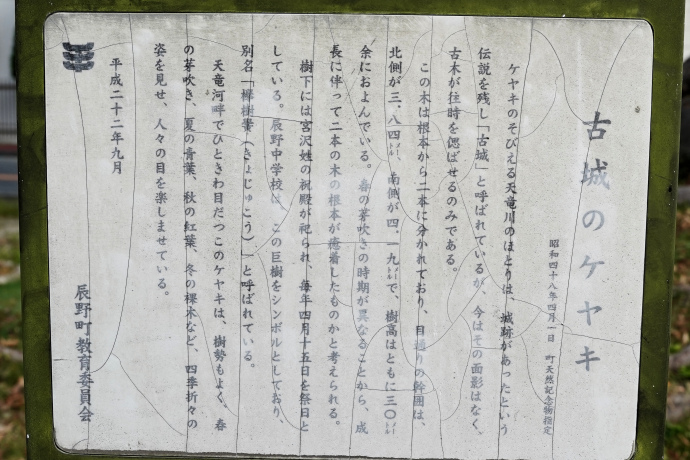 古城のケヤキ
昭和四十八年四月一日　町天然記念物指定
ケヤキのそびえる天竜川のほとりは、城跡があったという
伝説を残し「古城」と呼ばれているが、今はその面影はなく、
古木が往時を偲ばせるのみである。
この木は根本から二本に分かれており、目通りの幹囲は、
北側が三・八四㍍、南側が四・一九㍍で、樹高はともに三〇㍍
余におよんでいる。春の芽吹きの時期が異なることから、成
長に伴って二本の木の根本が癒着したものかと考えられる。
樹下には宮沢姓の祝殿が祀られ、毎年四月十五日を祭日と
している。辰野中学校は、この巨樹をシンボルとしており、
別名「欅樹黌（きょじゅこう）」と呼ばれている。
天竜河畔でひときわ目だつこのケヤキは、樹勢もよく、春
の芽吹き、夏の青葉、秋の紅葉、冬の裸木など、四季折々の
姿を見せ、人々の目を楽しませている。
平成二十二年九月
辰野町教育委員会